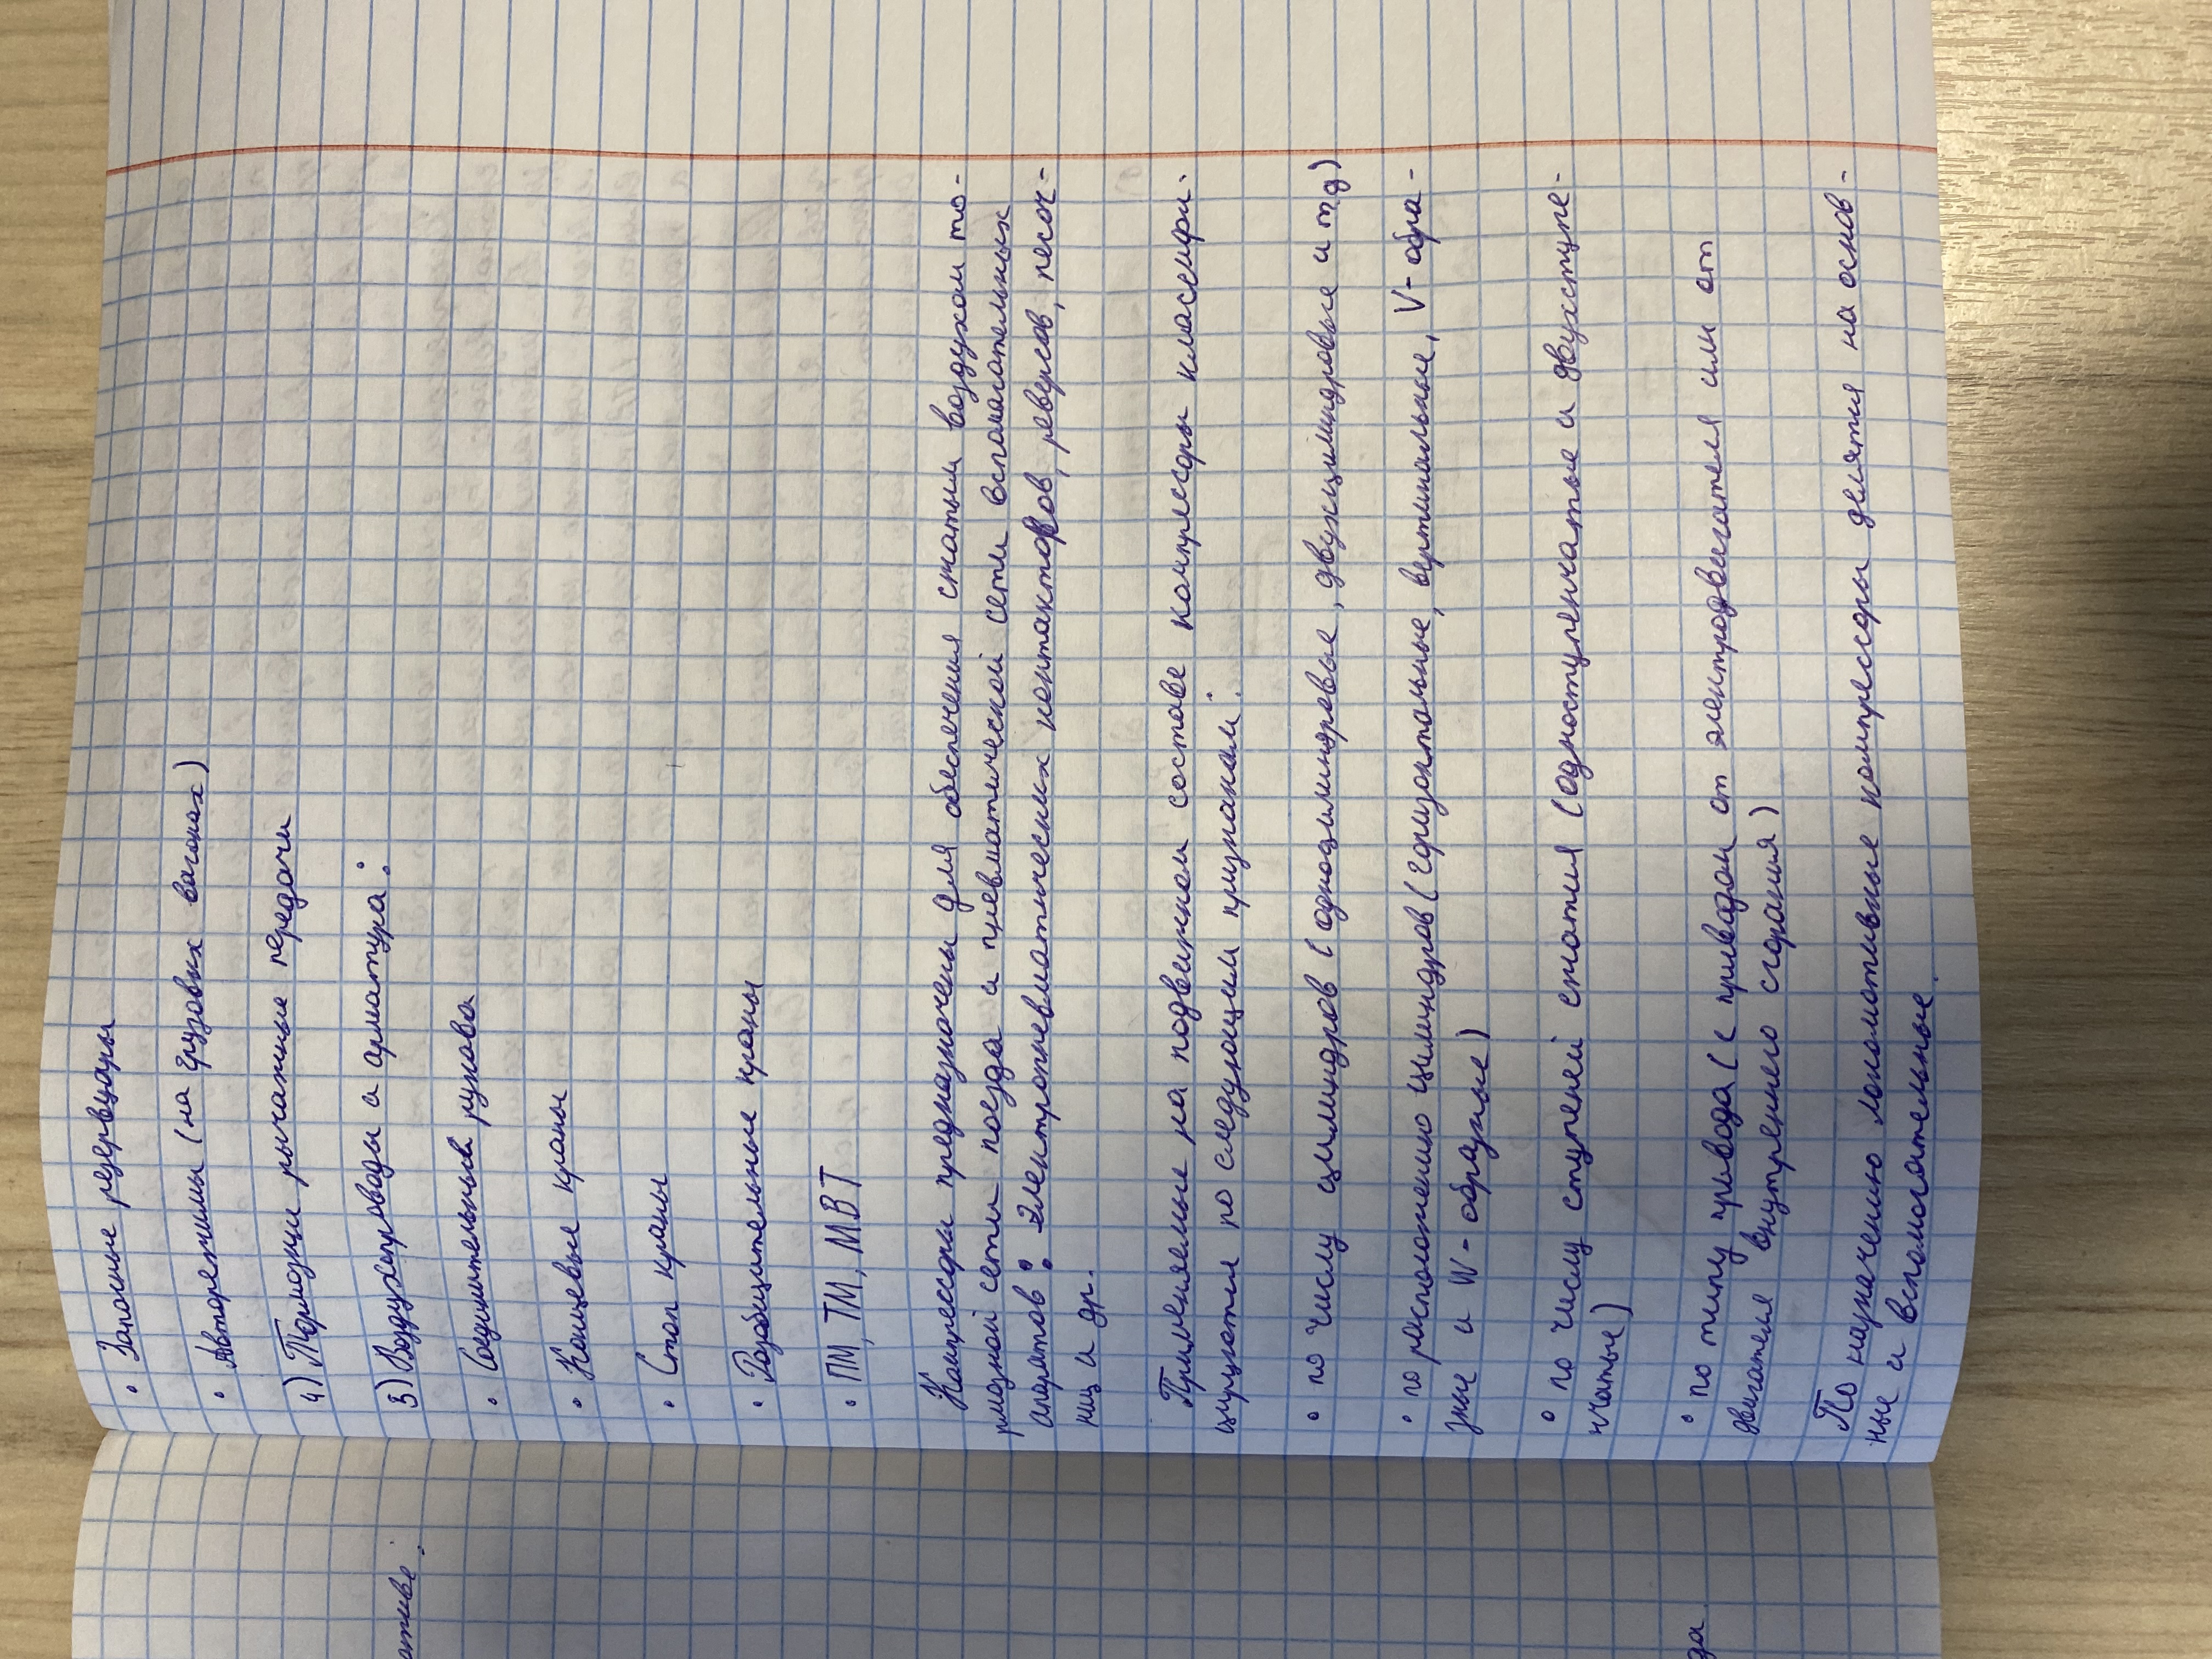 • Запасные резервуары
• Авторежимы (на грузовых вагонах)
4) Тормозные рычажные передачи
5) Воздухопроводы и арматура:
• Соединительные рукава
• Концевые краны
• Стоп краны
• Разобщительные краны
• ПМ, ТМ, МВТ
Компрессоры предназначены для обеспечения сжатым воздухом то-
рмозной сети поезда и пневматической сети вспомогательных
апаратов: электропневматических контакторов, реверсов, песоч-
ниц и др.
Применяемые на подвежном составе компрессоры классифи-
цируются по следующим признакам:
• по числу цилиндров (одноцилиндровые, двухцилиндровые и т д)
• по расположению цилиндров (горизотальные, вертикальные, V- обра-
зные и W- образные)
• по числу ступеней сжатия (одноступенчатые и двухступе-
нчатые)
• по типу привода (с приводом от электродвигателя или от
двигателя внутренего сгорания)
По назначению локомотивные компрессоры делятся на основ-
ные и вспомогательные.
ативе:
да